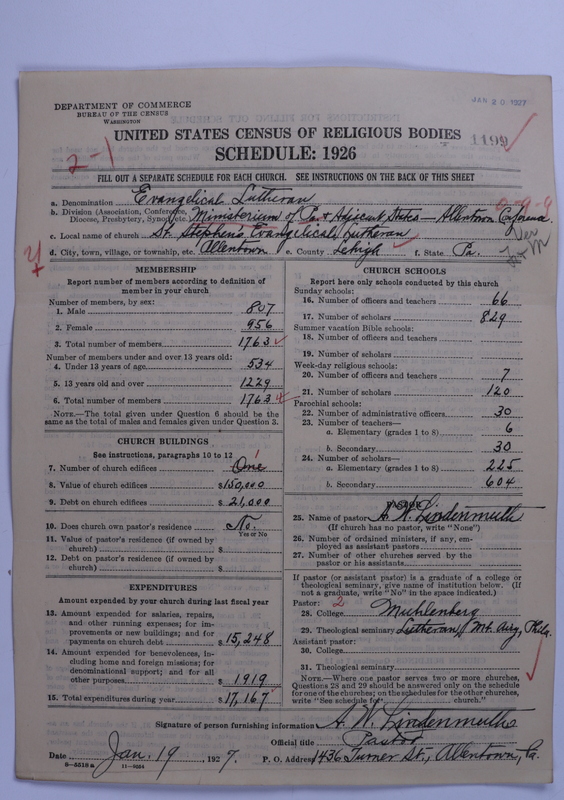 JAN 20 1927
DEPARTMENT OF COMMERCE
BUREAU OF THE CENSUS
WASHINGTON
UNITED STATES CENSUS OF RELIGIOUS BODIES
1199
SCHEDULE: 1926
2-1
FILL OUT A SEPARATE SCHEDULE FOR EACH CHURCH. SEE INSTRUCTIONS ON THE BACK OF THIS SHEET
a. Denomination Evangelical Lutheran
b. Division (Association, Conference, Diocese, Presbytery, Synod, etc. Ministerium of Pa. & Adjacent States — Allentown Conference
c. Local name of church St. Stephen's Evangelical Lutheran
d. City, town, village, or township, etc. Allentown e. County Lehigh f. State Pa.
MEMBERSHIP
Report number of members according to definition of
member in your church
Number of members, by sex:
1. Male 807
2. Female 956
3. Total number of members 1763
Number of members under and over 13 years old:
4. Under 13 years of age 534
5. 13 years old and over 1229
6. Total number of members 1763
NOTE.—The total given under Question 6 should be the
same as the total of males and females given under Question 3.
CHURCH BUILDINGS
See instructions, paragraphs 10 to 12
7. Number of church edifices One 1
8. Value of church edifices $150,000
9. Debt on church edifices $ 21,000
10. Does church own pastor's residence No.
Yes or No
11. Value of pastor's residence (if owned by
church) $
12. Debt on pastor's residence (if owned by
church) $
EXPENDITURES
Amount expended by your church during last fiscal year
13. Amount expended for salaries, repairs,
and other running expenses; for im-
provements or new buildings; and for
payments on church debt $ 15,248
14. Amount expended for benevolences, in-
cluding home and foreign missions; for
denominational support; and for all
other purposes $ 1919
15. Total expenditures during year $ 17,167
CHURCH SCHOOLS
Report here only schools conducted by this church
Sunday schools:
16. Number of officers and teachers 66
17. Number of scholars 829
Summer vacation Bible schools:
18. Number of officers and teachers
19. Number of scholars
Week-day religious schools:
20. Number of officers and teachers 7
21. Number of scholars 120
Parochial schools:
22. Number of administrative officers 30
23. Number of teachers—
a. Elementary (grades 1 to 8) 6
b. Secondary 30
24. Number of scholars—
a. Elementary (grades 1 to 8) 225
b. Secondary 604
PASTOR
25. Name of pastor A. W. Lindenmuth
(If church has no pastor, write "None")
26. Number of ordained ministers, if any, em-
ployed as assistant pastors
27. Number of other churches served by the
pastor or his assistants
If pastor (or assistant pastor) is a graduate of a college or
theological seminary, give name of institution below. (If
not a graduate, write "No" in the space indicated.)
Pastor: 2
28. College Muhlenberg
29. Theological seminary Lutheran, Mt. Airy, Phila.
Assistant pastor:
30. College
31. Theological seminary
NOTE.—Where one pastor serves two or more churches,
Questions 28 and 29 should be answered only on the schedule
for one of the churches; on the schedules for the other churches,
write "See schedule for church."
Signature of person furnishing information A. W. Lindenmuth
Official title Pastor
Date Jan. 19, 1927. P. O. Address 1436 Turner St., Allentown, Pa.
8-5518 a 11-9054